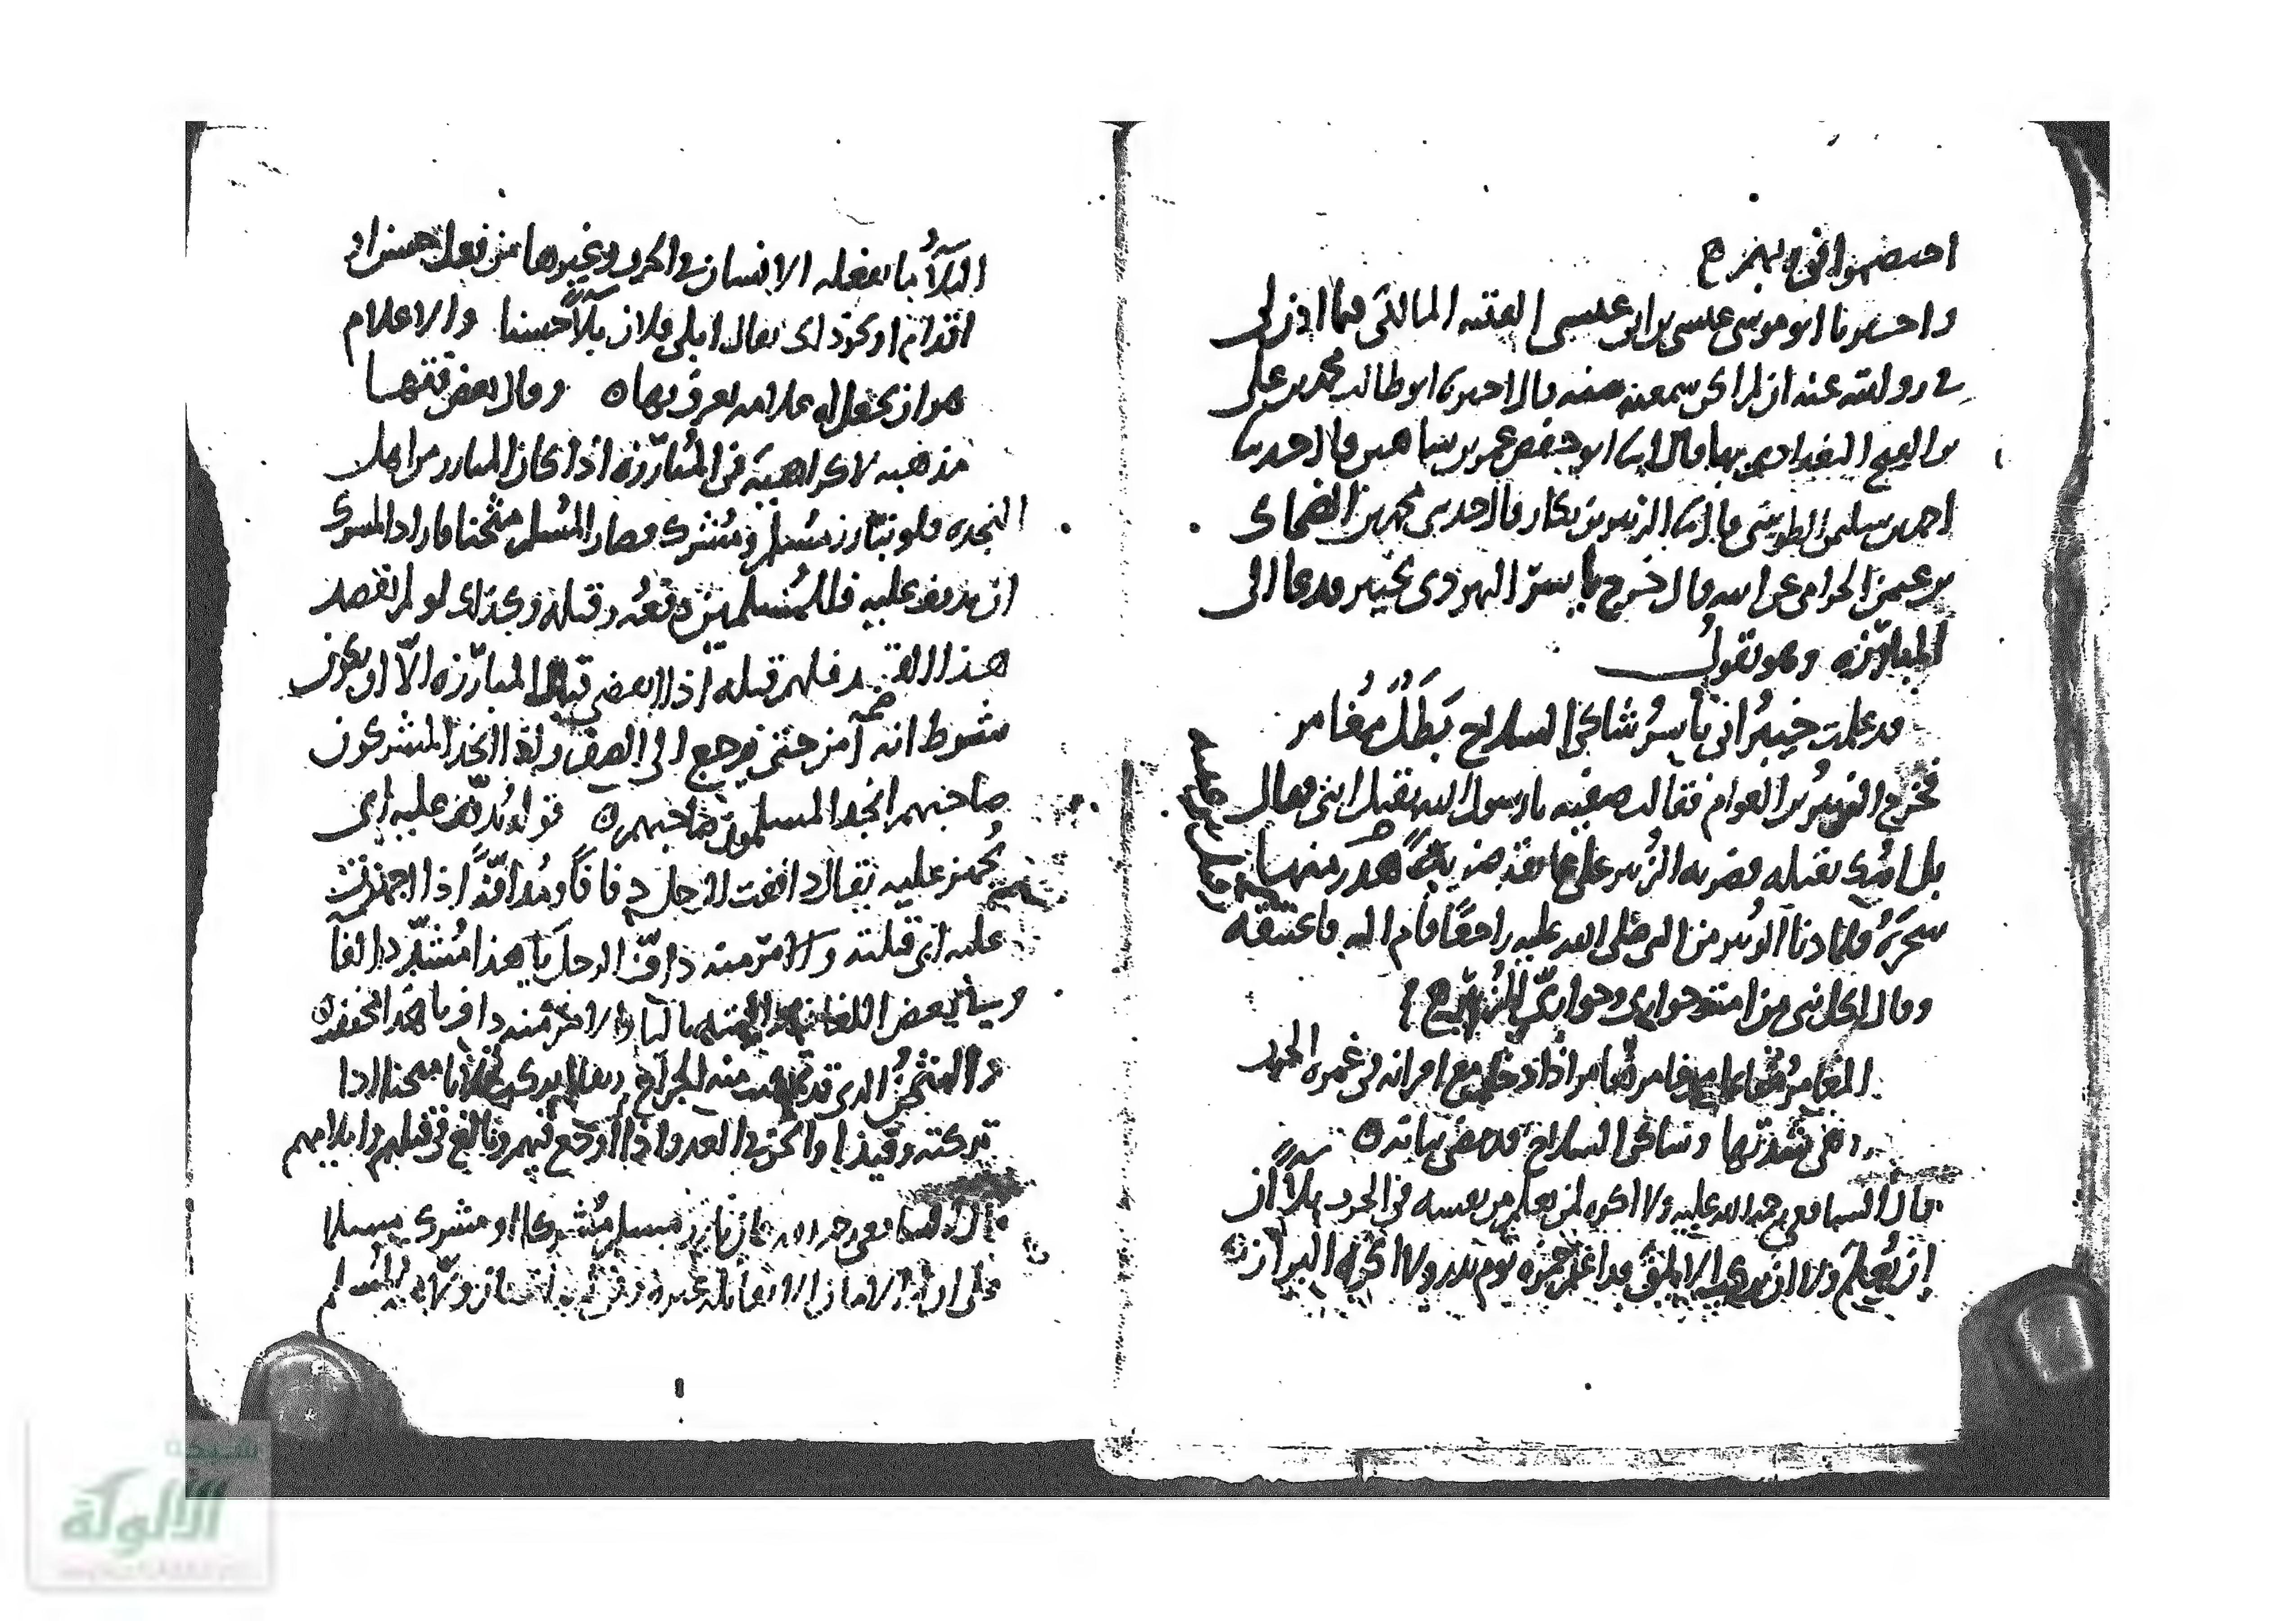 واخبرنا ابو موسى عيسى بن ابى عيسى الفقيه المالكى فيما اذن لى
فى روايته عنه ان لم اكن سمعته منه قال اخبرنا ابو طالب محمد بن على
بن الفتح البغدادى بها قال انا ابو حفص عمر بن شاهين قال حدثنا
احمد بن سليمن الطوسى قال انا الزبير بن بكار قال حدثنى محمد بن الضحاك
بن عثمن الحزامى عن ابيه قال خرج ياسر اليهودى بخيبر فدعا الى
المبارزه وهو يقول
قد علمت خيبرُ انى ياسرُ شاكى السلاح بَطَلٌ مُغامر
فخرج الزبيرُ بن العوام فقالت صفيه يا رسول الله يقتل ابنى فقال
بل ابنُك يقتله فضربه الزبير على عاتقه ضربةً هدر منها
سَحَرُه فلما دنا الزبير من النبى صلى الله عليه راجعًا قام اليه فاعتنقه
وقال لكل نبى من امته حوارى وحوارىّ الزُبير
المغامرُ غامر مغامرةً اذا دخل مع اقرانه فى غمره الحرب
وهى شدتها وشاكى السلاح قد مضى بيانه ه
قال الشافعى رحمه الله عليه ولا اكره لمن يعلم من نفسه فى الحرب بلآءً ان
يُعلِم ولا ان يركب الابلق قد اعلم حمزه يوم بدر ولا اكره البراز ه
البلآءُ ما يفعله الانسان فى الحرب وغيرها من فعل حسن او
اقدام او نحو ذلك يقال ابلى فلان بلآءً حسنا والاعلام
هو ان يجعل له علامه يعرف بها ه وقال بعض فقها
مذهبه لا كراهية فى المُبارَزه اذا كان المبارز من اهل
النجده فلو تبارز مُسلم ومُشرك فصار المُسلم مثخنا فاراد المشرك
ان يدفف عليه فللمُسلمين دفعُه وقتله وكذلك لو لم يقصد
هذا القصد فلهم قتله اذا انقضى قتال المبارَزه الّا ان يكون
شرط انه آمن حتى يرجع الى الصف واذا انجد المشركون
صاحبهم انجد المسلمون صاحبهم ه قوله يُدفّف عليه اى
يُجهز عليه يقال داففت الرجل دفافًا ومُدافّةً اذا اجهزت
عليه اى قتلته والامر منه دافّ الرجل يا هذا مُشدّد الفآ
وفى بعض اللغات بالتا والامر منه داف يا هذا مخففه
والمثخنُ الذى قد منه الجراح ويقال تركت فلانا مثخنا اذا
تركته وقيذا واثخن فى العدو اذا اوقع فيهم وبالغ فى قتلهم وايلامهم
قال الشافعى رحمه الله فان بارز مسلم مُشركا او مشرك مسلما
على ان لا يقاتله غيره